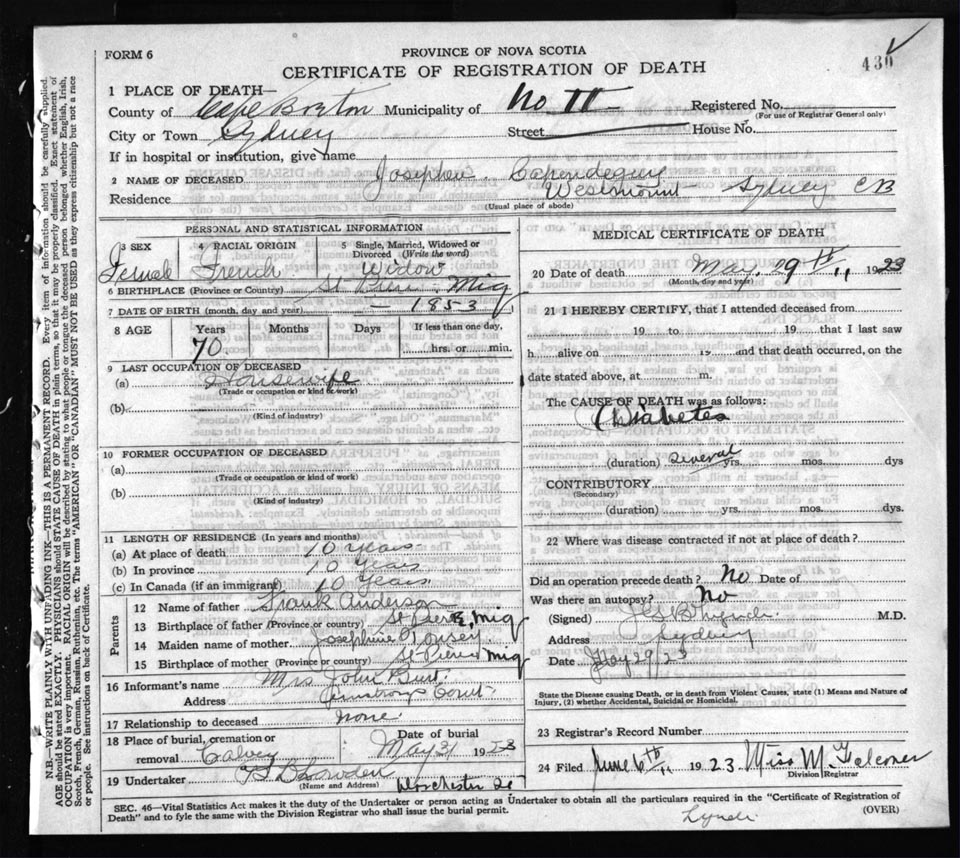 FORM 6
PROVINCE OF NOVA SCOTIA
CERTIFICATE OF REGISTRATION OF DEATH
430
1 PLACE OF DEATH—
County of Cape Breton Municipality of No II Registered No.
(For use of Registrar General only)
City or Town Sydney Street House No.
If in hospital or institution, give name
2 NAME OF DECEASED Josephen
Residence Westmount Sydney CB
(Usual place of abode)
PERSONAL AND STATISTICAL INFORMATION
3 SEX 4 RACIAL ORIGIN 5 Single, Married, Widowed or Divorced (Write the word)
Female French Widow
6 BIRTHPLACE (Province or Country) St Pierre Miq
7 DATE OF BIRTH (month, day and year) — 1853
8 AGE Years Months Days If less than one day,
70 hrs. or min.
9 LAST OCCUPATION OF DECEASED
(a) Housewife
(Trade or occupation or kind of work)
(b)
(Kind of industry)
10 FORMER OCCUPATION OF DECEASED
(a)
(Trade or occupation or kind of work)
(b)
(Kind of industry)
11 LENGTH OF RESIDENCE (In years and months)
(a) At place of death 10 years
(b) In province 10 Years
(c) In Canada (if an immigrant) 10 Years
Parents
12 Name of father Frank Anderson
13 Birthplace of father (Province or country) St Pierre, Miq
14 Maiden name of mother Josephine
15 Birthplace of mother (Province or country) St Pierre Miq
16 Informant's name Mrs John Burt
Address Armstrong Court
17 Relationship to deceased none
18 Place of burial, cremation or removal Date of burial
Calvey May 31 1923
19 Undertaker
(Name and Address) Dorchester St
MEDICAL CERTIFICATE OF DEATH
20 Date of death May. 29th 1923
(Month, day and year)
21 I HEREBY CERTIFY, that I attended deceased from
19 to 19 that I last saw
h alive on 19 and that death occurred, on the
date stated above, at m.
The CAUSE OF DEATH was as follows:
Diabetes
(duration) several yrs. mos. dys
CONTRIBUTORY
(Secondary)
(duration) yrs. mos. dys.
22 Where was disease contracted if not at place of death?
Did an operation precede death? No Date of
Was there an autopsy? No
(Signed) M.D.
Address Sydney
Date May 29/23
State the Disease causing Death, or in death from Violent Causes, state (1) Means and Nature of
Injury, (2) whether Accidental, Suicidal or Homicidal.
23 Registrar's Record Number
24 Filed June 6th 1923 Miss M. Falconer
Division Registrar
SEC. 46—Vital Statistics Act makes it the duty of the Undertaker or person acting as Undertaker to obtain all the particulars required in the "Certificate of Registration of
Death" and to fyle the same with the Division Registrar who shall issue the burial permit.
(OVER)
N.B.—WRITE PLAINLY WITH UNFADING INK—THIS IS A PERMANENT RECORD. Every item of information should be carefully supplied.
AGE should be stated EXACTLY. PHYSICIANS should STATE CAUSE OF DEATH in plain terms, so that it may be properly classified. Exact statement of
OCCUPATION is very important. RACIAL ORIGIN will be described by stating to what people or tongue the deceased person belonged whether English, Irish,
Scotch, French, German, Russian, Ruthenian, etc. The terms "AMERICAN" or "CANADIAN" MUST NOT BE USED as they express citizenship but not a race
or people. See instructions on back of Certificate.